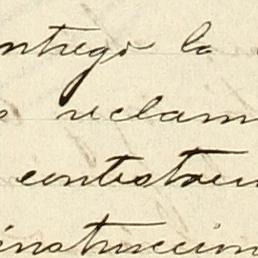 ntregó la
reclam
contestac
instruccion